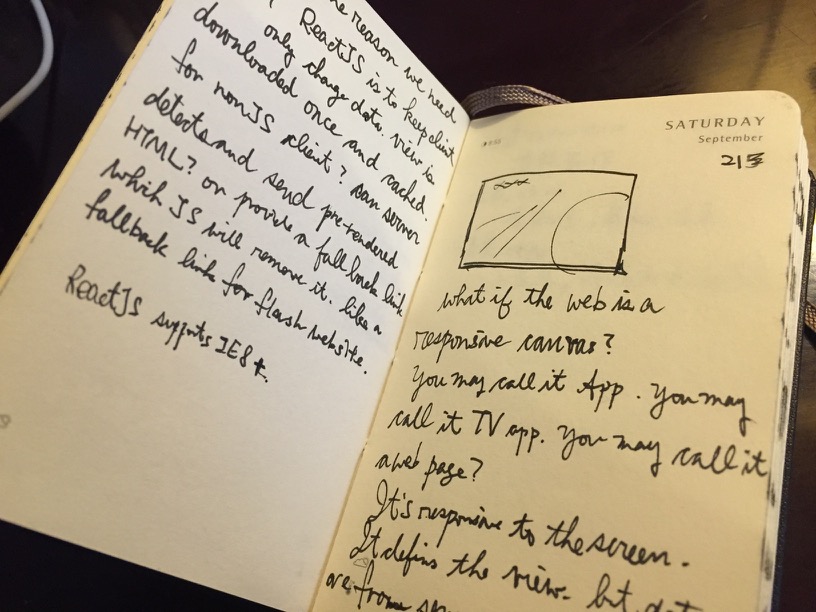 the reason we need
ReactJS is to keep client
only change data. view is
downloaded once and cached.
for nonJS client? can server
detects and send pre-rendered
HTML? or provide a fallback link
which JS will remove it. like a
fallback link for flash website.
ReactJS supports IE8 +.
SATURDAY
September
what if the web is a
responsive canvas?
You may call it App. You may
call it TV app. You may call it
a web page?
It's responsive to the screen.
It defins the view. but
are from